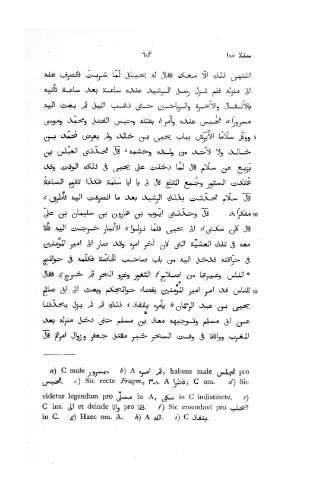 سنة ١٨٧ ٦٨٣
اشتهى ذلك الا سعك فقال له يحيى لمّا شربتَ فانصرف عنه
الى منزله فلم تزل رسل الرشيد عنده ساعة بعد ساعة تأتيه
بالأنفال والأبخرة والرياحين حتى ذهب الليل ثم بعث اليه
مسرورا فحبس عنده وأمر بقتله وحبس الفضل ومحمد وموسى
ووكل سلّاما الأبرش بباب يحيى بن خالد ولم يعرض لمحمد بن
خالد ولا لاحد من ولده وحشمه قال فحدّثنى العباس بن
بزيع عن سلّام قال لما دخلت على يحيى فى ذلك الوقت وقد
هُتكت الستور وجُمع المتاع قال لى يا ابا سلمة هكذا تقوم الساعة
قال سلّام فحدّثت بذلك الرشيد بعد ما انصرفت اليه فأطرق
مفكرا قال وحدّثنى ايوب بن هارون بن سليمان بن على
قال كان سكنى الى يحيى فلما نزلوا الأنبار خرجت اليه فأنا
معه فى تلك العشيّة التى كان آخر امره وقد صار الى امير المؤمنين
فى حرّاقته فدخل اليه من باب صاحب الخاصّة فكلّمه فى حوائج
الناس وغيرها من اصلاح الثغور وغزو البحر ثم خرج فقال
للناس قد امر امير المؤمنين بقضاء حوائجكم وبعث الى ابى صالح
يحيى بن عبد الرحمان يأمره بانفاذ ذلك ثم لم يزل يحدّثنا
عن ابى مسلم وتوجيهه معاذ بن مسلم حتى دخل منزله بعد
المغرب ووافانا فى وقت السحر خبر مقتل جعفر وزوال امرهم قال
a) C male مسرور. b) A ثم امره, habens male لمجلس pro
لحبس. c) Sic recte Fragm. ٣٠٨. A فلمّا; C om. d) Sic
videtur legendum pro مسلى in A, سكنى in C indistincte. e)
C ins. الى et deinde وانا pro فانا. f) Sic emendavi pro اصحاب
in C. g) Haec om. A. h) A الله. i) C بنفاذ.